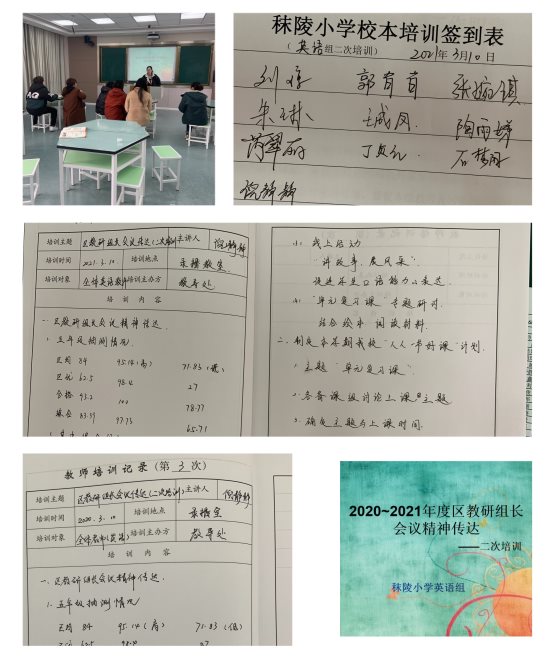 秣陵小学校本培训签到表
（英语组二次培训） 2021年3月10日
郭育育
丁贞允
倪静静
培训主题 区教研组长会议传达（二次培训） 主讲人 倪静静
培训时间 2021.3.10 培训地点 录播教室
培训对象 全体英语教师 培训主办方 教导处
培 训 内 容
一、区教研组长会议精神传达
1. 五年级抽测情况
区均 84 95.14(高) 71.83(低)
区优 62.5 98.4 27
合格 93.2 100 78.77
综合 83.59 97.73 65.71
(3) 线上活动
“讲故事，展风采”
促进学生口语能力与表达
(4) “单元复习课”专题研讨
结合绘本、阅读材料
二、制定本学期我校“人人一节好课”计划
1. 主题“单元复习课”
2. 各备课组讨论上课主题
3. 确定主题与上课时间
教 师 培 训 记 录（第 3 次）
培训主题 区教研组长会议传达(二次培训) 主讲人 倪静静
培训时间 2020.3.10 培训地点 录播室
培训对象 全体教师(英语) 培训主办方 教导处
培 训 内 容
一、区教研组长会议精神传达
1. 五年级抽测情况
区均 84 95.14(高) 71.83(低)
2020~2021年度区教研组长
会议精神传达
——二次培训
秣陵小学英语组